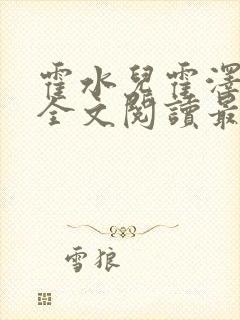 霍水兒霍澤
全文閱讀最
雪狼